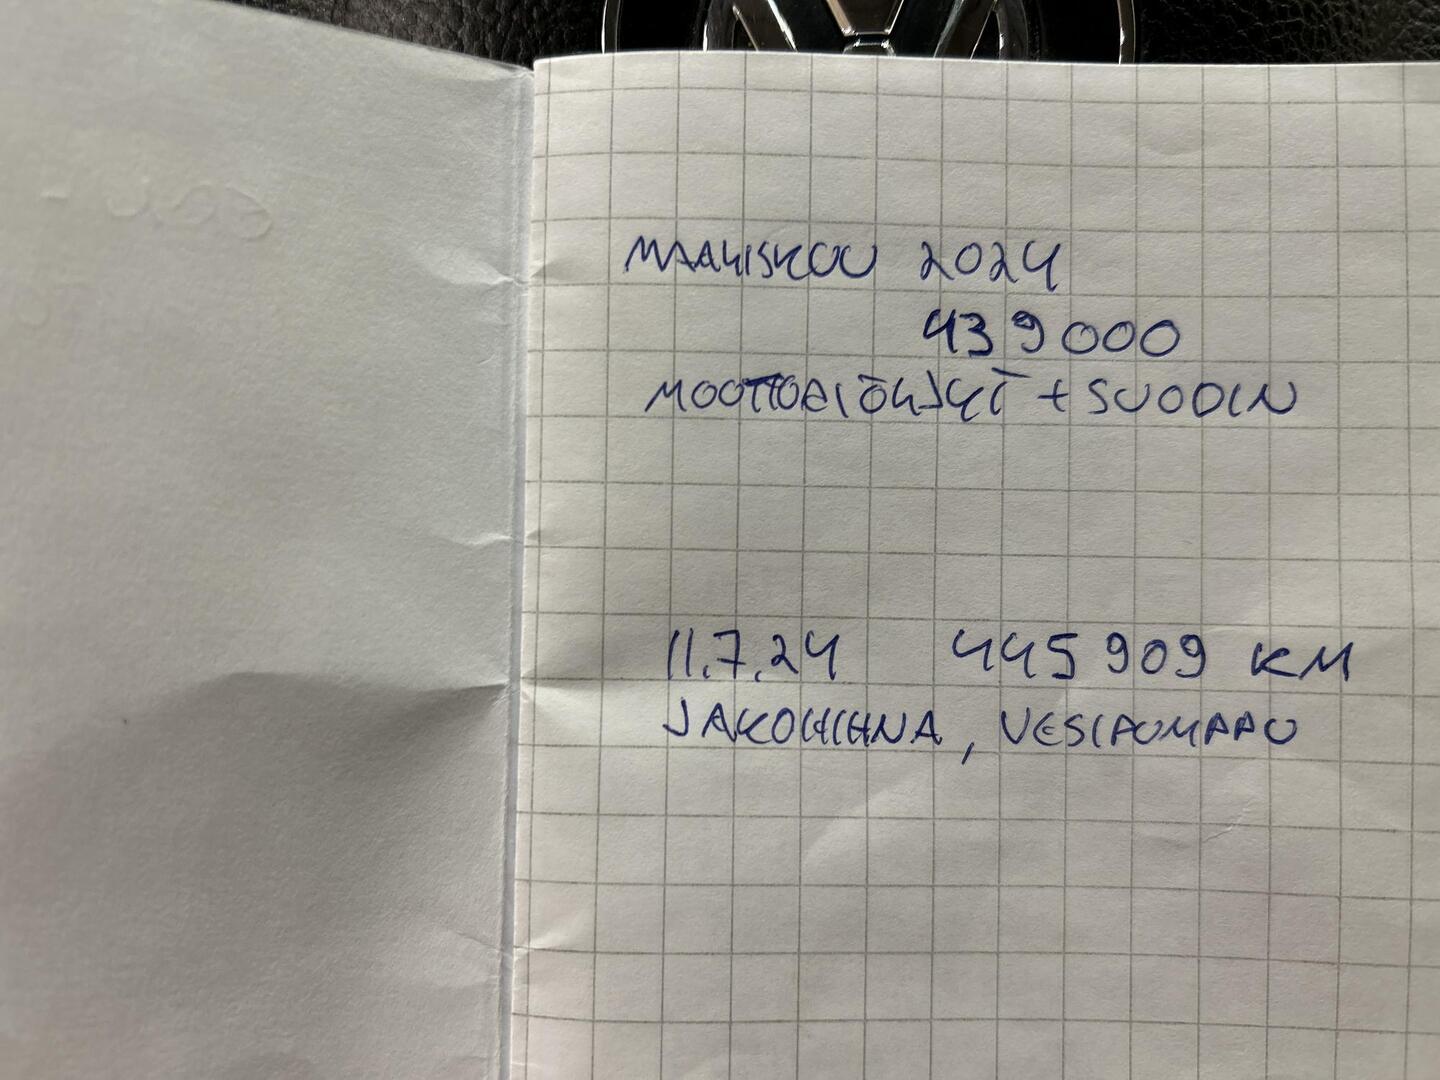 MAALISKUU 2024
439000
MOOTTORIÖLJYT + SUODIN
11.7.24 445 909 KM
JAKOHIHNA, VESIPUMPPU